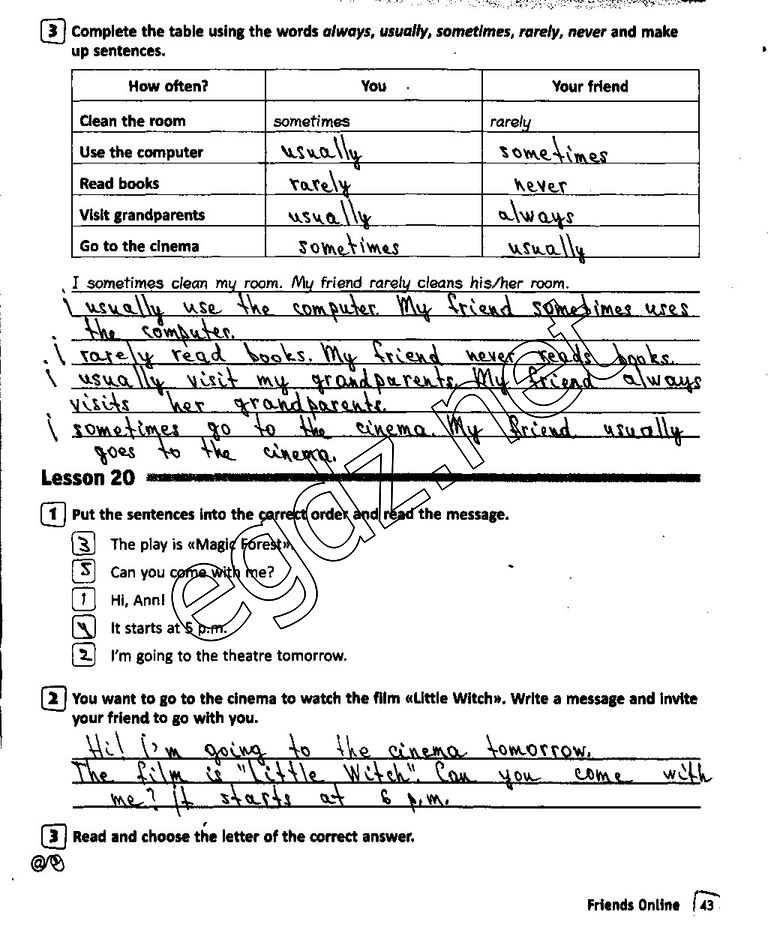 3 Complete the table using the words always, usually, sometimes, rarely, never and make
up sentences.
How often? You Your friend
Clean the room sometimes rarely
Use the computer usually sometimes
Read books rarely never
Visit grandparents usually always
Go to the cinema sometimes usually
I sometimes clean my room. My friend rarely cleans his/her room.
i usually use the computer. My friend sometimes uses
the computer.
i rarely read books. My friend never reads books.
i usually visit my grandparents. My friend always
visits her grandparents.
i sometimes go to the cinema. My friend usually
goes to the cinema.
Lesson 20
1 Put the sentences into the correct order and read the message.
3 The play is «Magic Forest».
5 Can you come with me?
1 Hi, Ann!
4 It starts at 5 p.m.
2 I'm going to the theatre tomorrow.
egdz.net
2 You want to go to the cinema to watch the film «Little Witch». Write a message and invite
your friend to go with you.
Hi! I'm going to the cinema tomorrow.
The film is "Little Witch". Can you come with
me? It starts at 6 p.m.
3 Read and choose the letter of the correct answer.
Friends Online 43